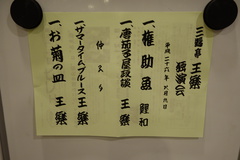 三遊亭 王樂
独演会
平成二十六年 六月六日
一、権助魚 鯉和
一、唐茄子屋政談 王樂
仲入り
一、サマータイムブルース 王樂
一、お菊の皿 王樂